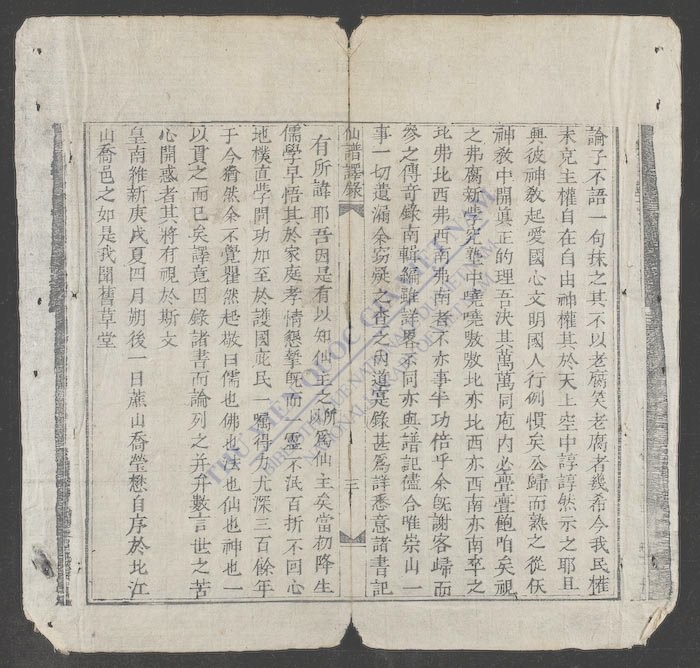 諭子不語一句抹之其不以老腐笑老腐者幾希今我民權
未克主權自在自由神權其於天上空中諄諄然示之耶且
興彼神教起愛國心文明國人行例慣矣公歸而熟之從仸
神教中開眞正的理吾決其萬萬同胞内必疊疊飽咱矣視
之弗腐新學究輩中嘵嘵敖敖北亦北西亦西南亦南卒之
北弗北西弗西南弗南者不亦事半功倍乎余旣謝客歸而
參之傳奇錄南輯編雖詳畧不同亦與譜記儘合唯崇山一
事一切遺漏余窃疑之查之内道寔錄甚爲詳悉意諸書記
仙譜譯錄
三
有所諱耶吾因是有以知仙主之所以爲仙主矣當初降生
儒學早悟其於家庭孝情懇摯旣而一靈不泯百折不回心
地樸直學問功加至於護國庇民一嘱得力尤深三百餘年
于今猶然余不覺瞿然起敬曰儒也佛也法也仙也神也一
以貫之而已矣譯竟因錄諸書而論列之并弁數言世之苦
心開惑者其將有視於斯文
皇南維新庚戌夏四月朔後一日蕉山喬瑩懋自序於北江
山喬邑之如是我聞舊草堂
THƯ VIỆN QUỐC GIA VIỆT NAM
BIBLIOTHÈQUE NATIONALE DU VIETNAM
NATIONAL LIBRARY OF VIETNAM